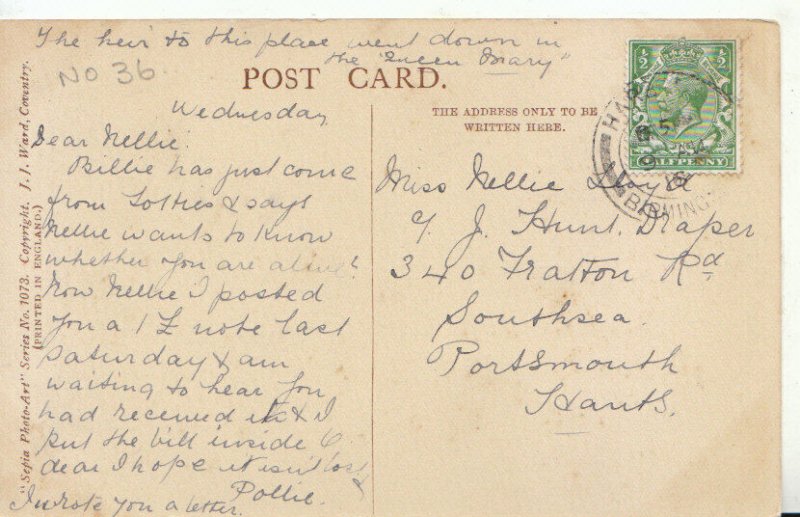 The heir to this place went down in
the "Queen Mary"
NO 36
POST CARD.
Wednesday
THE ADDRESS ONLY TO BE
WRITTEN HERE.
Dear Nellie.
Billie has just come
from Lotties & says
Nellie wants to know
whether you are alive!
Now Nellie I posted
you a 1£ note last
Saturday & am
waiting to hear you
had received it & I
put the bill inside
dear I hope it isn't lost
Pollie.
I wrote you a letter.
Miss Nellie Lloyd
c/o J. Hunt. Draper
340 Fratton Rd
Southsea.
Portsmouth
Hants.
"Sepia Photo-Art" Series No. 1073. Copyright, J. J. Ward, Coventry.
(PRINTED IN ENGLAND.)
1/2 1/2
HALFPENNY